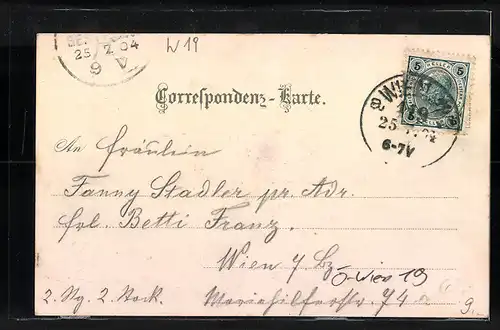 25 2 04
9 V
W19
Correspondenz-Karte.
5 5
WIEN
25
6-7V
An Fräulein
Fanny Stadler pr. Adr.
frl. Betti Franz.
Wien 7 Bz.
Ö-Wien 19
2. Stg. 2. Stock. Mariahilferstr. 74 a
9.